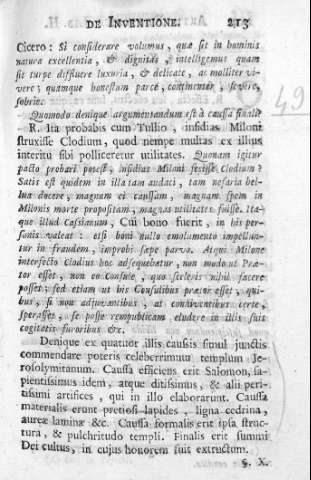 DE INVENTIONE. 213
Cicero: Si considerare volumus, quæ sit in hominis
natura excellentia, & dignitas, intelligemus quam
sit turpe diffluere luxuria, & delicate, ac molliter vi-
vere; quamque honestum parce, continenter, severe,
sobrie.
Quomodo denique argumentandum est à caussa finali?
R. Ita probabis cum Tullio, insidias Miloni
struxisse Clodium, quod nempe multas ex illius
interitu sibi polliceretur utilitates. Quonam igitur
pacto probari potest, insidias Miloni fecisse Clodium?
Satis est quidem in illa tam audaci, tam nefaria bel-
lua docere, magnam ei caussam, magnam spem in
Milonis morte propositam, magnas utilitates fuisse. Ita-
que illud Cassianum, Cui bono fuerit, in his per-
sonis valeat: etsi boni nullo emolumento impellun-
tur in fraudem, improbi sæpe parvo. Atqui Milone
interfecto Clodius hoc adsequebatur, non modo ut Præ-
tor esset, non eo Consule, quo sceleris nihil facere
posset; sed etiam ut his Consulibus prætor esset, qui-
bus, si non adjuvantibus, at conniventibus certe,
sperasset, se posse rempublicam eludere in illis suis
cogitatis furoribus &c.
Denique ex quatuor illis caussis simul junctis
commendare poteris celeberrimum templum Je-
rosolymitanum. Caussa efficiens erit Salomon, sa-
pientissimus idem, atque ditissimus, & alii peri-
tissimi artifices, qui in illo elaborarunt. Caussa
materialis erunt pretiosi lapides, ligna cedrina,
aureæ laminæ &c. Caussa formalis erit ipsa structu-
ra, & pulchritudo templi. Finalis erit summi
Dei cultus, in cujus honorem suit extructum.
§. X.
49